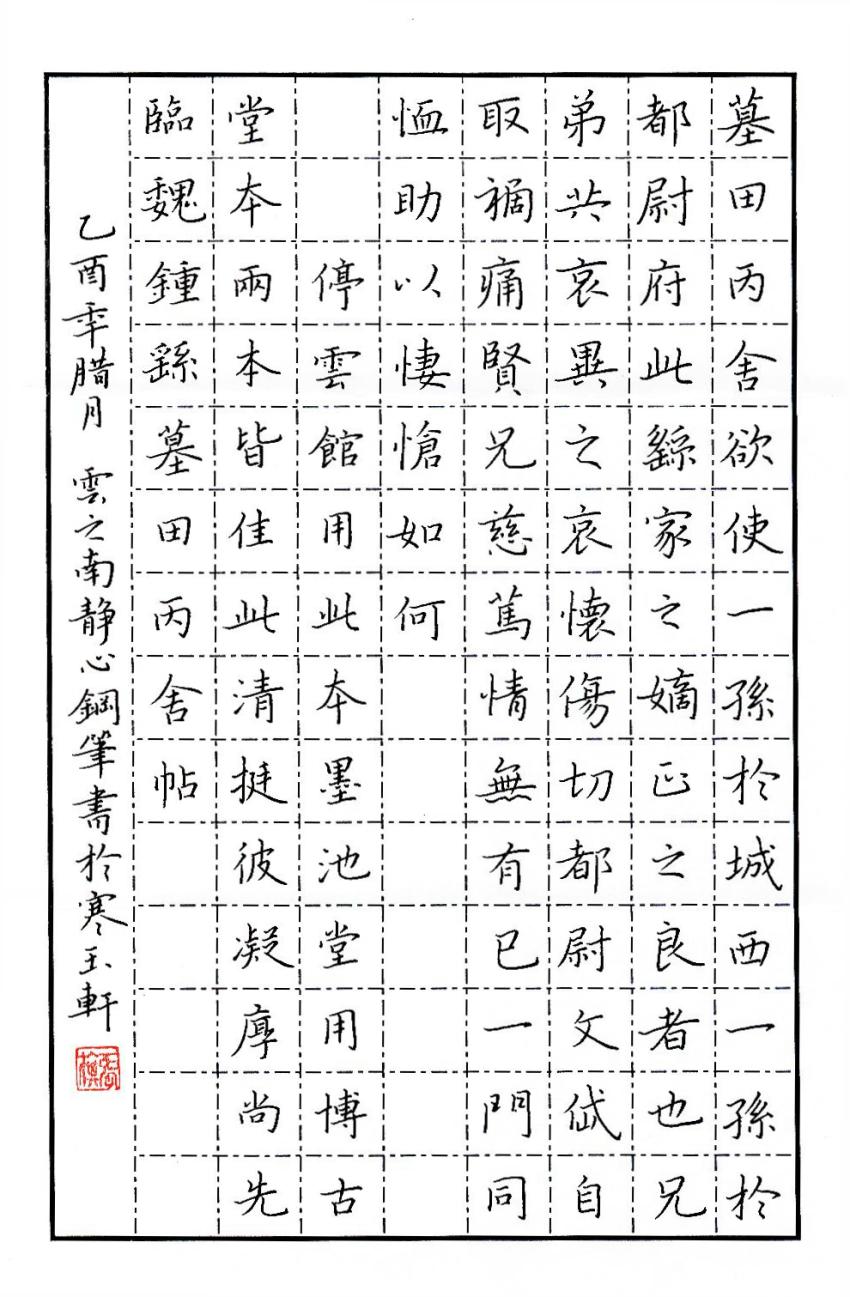 墓田丙舍欲使一孫於城西一孫於
都尉府此繇家之嫡正之良者也兄
弟共哀異之哀懷傷切都尉文岱自
取禍痛賢兄慈篤情無有已一門同
恤助以悽愴如何
停雲館用此本墨池堂用博古
堂本兩本皆佳此清挺彼凝厚尚先
臨魏鍾繇墓田丙舍帖
乙酉年腊月 雲之南静心鋼筆書於寒玉軒